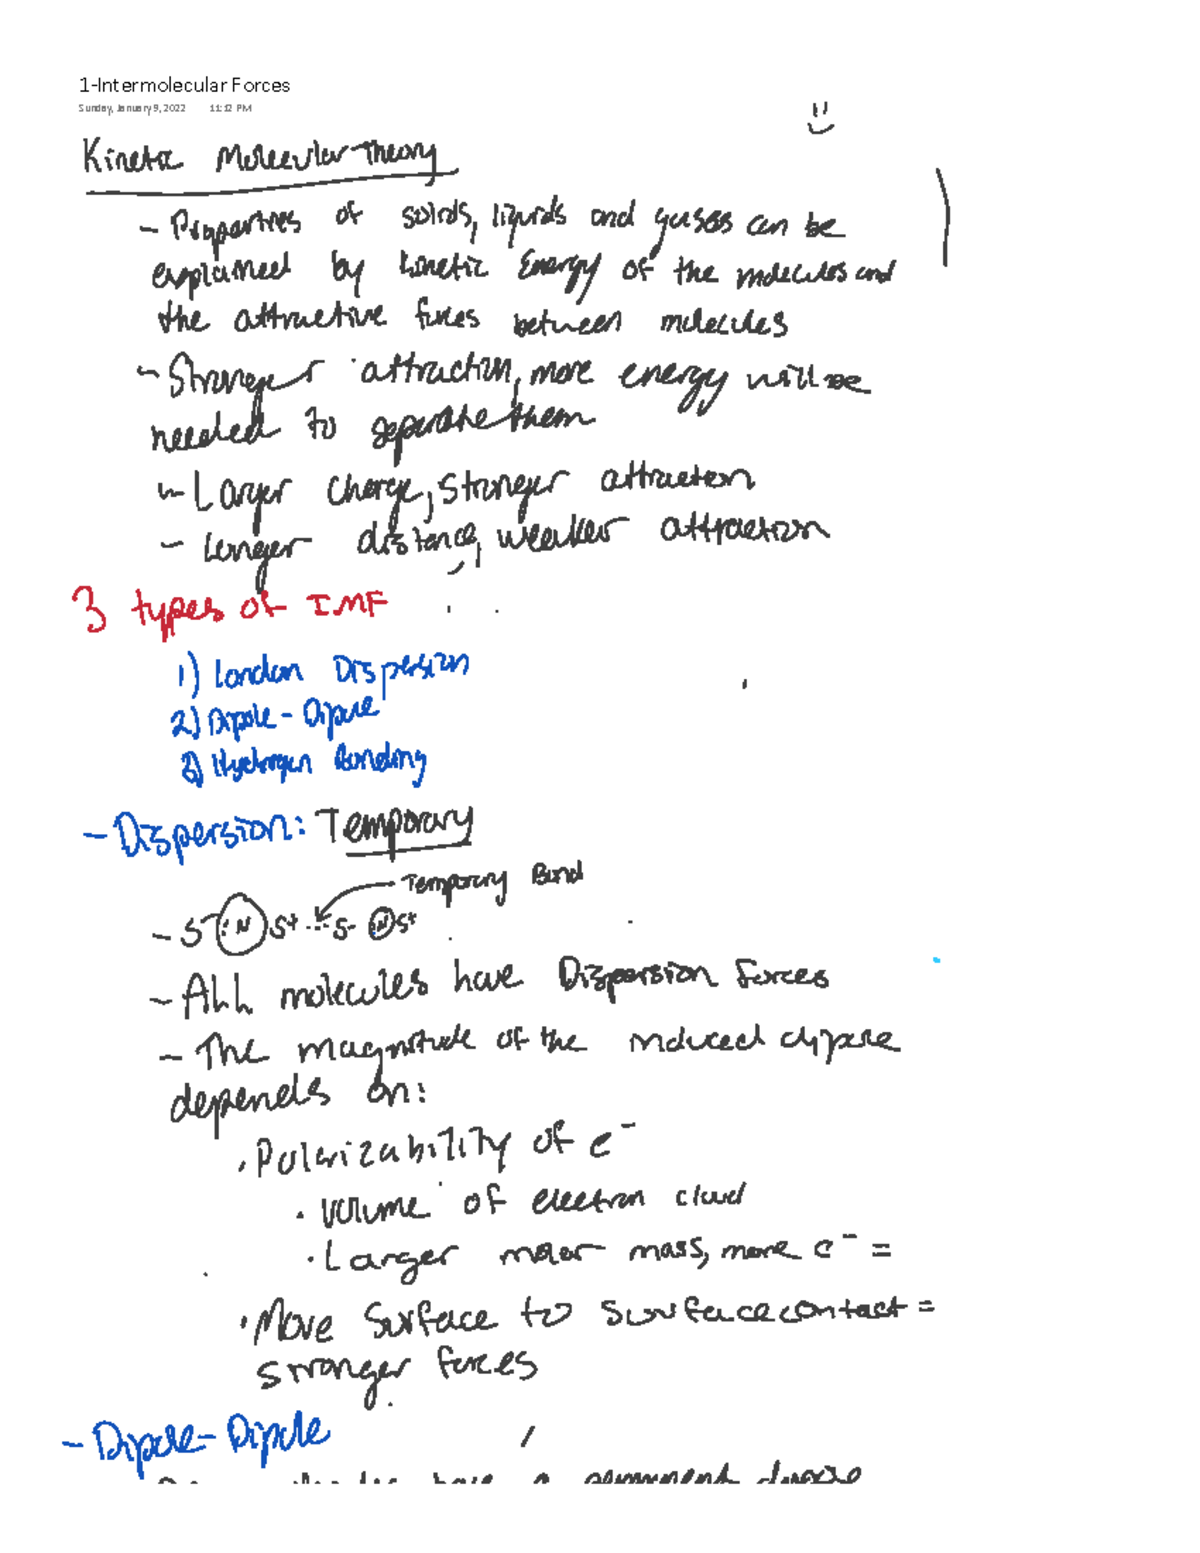 1-Intermolecular Forces
Sunday, January 9, 2022 11:12 PM
Kinetic Molecular Theory
- Properties of solids, liquids and gases can be
explained by Kinetic Energy of the molecules and
the attractive forces between molecules
- Stronger attraction, more energy will be
needed to separate them
- Larger charge, stronger attraction
- Longer distance, weaker attraction
3 types of IMF
1) London Dispersion
2) Dipole-Dipole
3) Hydrogen Bonding
- Dispersion: Temporary
Temporary Bond
- S- :N S+ ... S- :N S+
- ALL molecules have Dispersion Forces
- The magnitude of the induced dipole
depends on:
· Polarizability of e⁻
· Volume of electron cloud
· Larger molar mass, more e⁻ =
· More Surface to Surface contact =
stronger forces
- Dipole-Dipole
have a permanent dipole